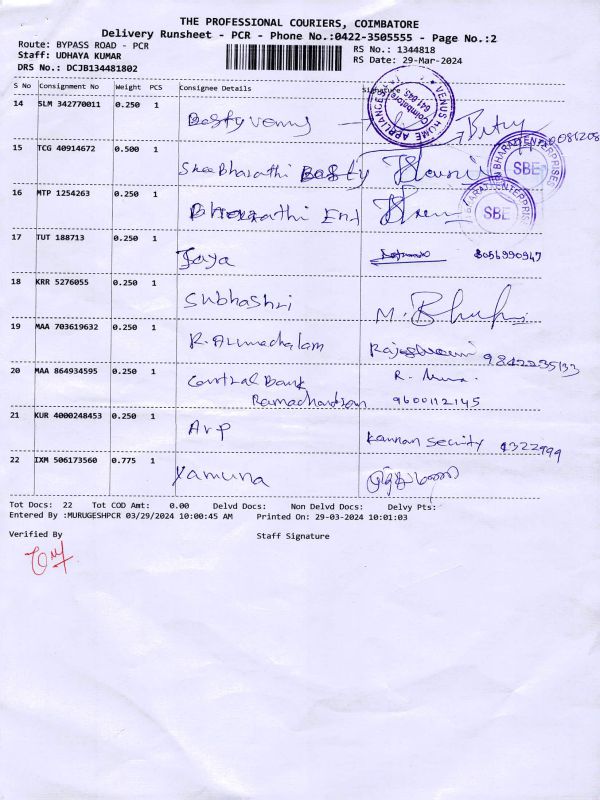 THE PROFESSIONAL COURIERS, COIMBATORE
Delivery Runsheet - PCR - Phone No.:0422-3505555 - Page No.:2
Route: BYPASS ROAD - PCR
RS No.: 1344818
Staff: UDHAYA KUMAR
RS Date: 29-Mar-2024
DRS No.: DCJB134481802
S No Consignment No Weight PCS Consignee Details Signature
14 SLM 342770011 0.250 1
Venus
VENUS HOME APPLIANCES
Coimbatore
641 045.
15 TCG 40914672 0.500 1
Shree Bharathi
BHARATH ENTERPRISES
SBE
16 MTP 1254263 0.250 1
Bharathi Ent
BHARATH ENTERPRISES
SBE
17 TUT 188713 0.250 1
Jaya 8056990947
18 KRR 5276055 0.250 1
Subhashri
19 MAA 703619632 0.250 1
R. Arunachalam Rajeshwari
20 MAA 864934595 0.250 1
Central Bank
Ramachandran 9600112145
21 KUR 4000248453 0.250 1
Arp Kannan Security
22 IXM 506173560 0.775 1
Yamuna
Tot Docs: 22 Tot COD Amt: 0.00 Delvd Docs: Non Delvd Docs: Delvy Pts:
Entered By :MURUGESHPCR 03/29/2024 10:00:45 AM Printed On: 29-03-2024 10:01:03
Verified By Staff Signature